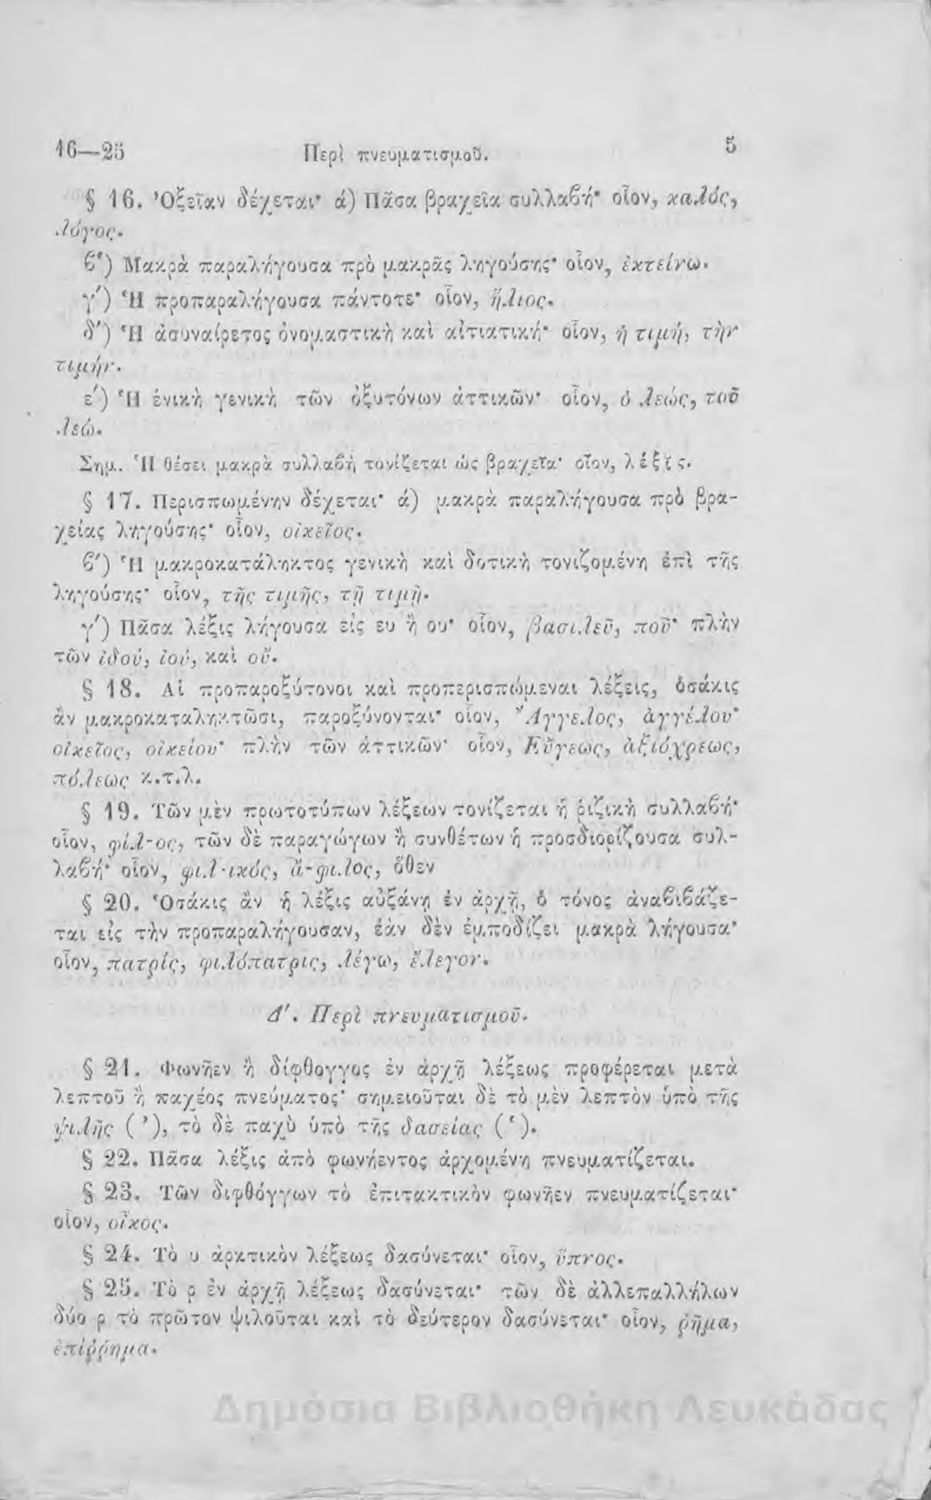 16—25 Περὶ πνευματισμοῦ. 5
§ 16. Ὀξεῖαν δέχεται· ά) Πᾶσα βραχεῖα συλλαβή· οἷον, καλός,
λόγος.
β') Μακρὰ παραλήγουσα πρὸ μακρᾶς ληγούσης· οἷον, ἐκτείνω.
γ') Ἡ προπαραλήγουσα πάντοτε· οἷον, ἥλιος.
δ') Ἡ ἀσυναίρετος ὀνομαστικὴ καὶ αἰτιατική· οἷον, ἡ τιμή, τὴν
τιμήν.
ε') Ἡ ἑνικὴ γενικὴ τῶν ὀξυτόνων ἀττικῶν· οἷον, ὁ λεώς, τοῦ
λεώ.
Σημ. Ἡ θέσει μακρὰ συλλαβὴ τονίζεται ὡς βραχεῖα· οἷον, λέξις.
§ 17. Περισπωμένην δέχεται· ά) μακρὰ παραλήγουσα πρὸ βρα-
χείας ληγούσης· οἷον, οἰκεῖος.
β') Ἡ μακροκατάληκτος γενικὴ καὶ δοτικὴ τονιζομένη ἐπὶ τῆς
ληγούσης· οἷον, τῆς τιμῆς, τῇ τιμῇ.
γ') Πᾶσα λέξις λήγουσα εἰς ευ ἢ ου· οἷον, βασιλεῦ, ποῦ· πλὴν
τῶν ἰδού, ἰού, καὶ οὔ.
§ 18. Αἱ προπαροξύτονοι καὶ προπερισπώμεναι λέξεις, ὁσάκις
ἂν μακροκαταληκτῶσι, παροξύνονται· οἷον, Ἄγγελος, ἀγγέλου·
οἰκεῖος, οἰκείου· πλὴν τῶν ἀττικῶν· οἷον, Εὔγεως, ἀξιόχρεως,
πόλεως κ.τ.λ.
§ 19. Τῶν μὲν πρωτοτύπων λέξεων τονίζεται ἡ ῥιζικὴ συλλαβή·
οἷον, φίλ-ος, τῶν δὲ παραγώγων ἢ συνθέτων ἡ προσδιορίζουσα συλ-
λαβή· οἷον, φιλ-ικός, ἄ-φιλος, ὅθεν
§ 20. Ὁσάκις ἂν ἡ λέξις αὐξάνῃ ἐν ἀρχῇ, ὁ τόνος ἀναβιβάζε-
ται εἰς τὴν προπαραλήγουσαν, ἐὰν δὲν ἐμποδίζει μακρὰ λήγουσα·
οἷον, πατρίς, φιλόπατρις, λέγω, ἔλεγον.
Δ'. Περὶ πνευματισμοῦ.
§ 21. Φωνῆεν ἢ δίφθογγος ἐν ἀρχῇ λέξεως προφέρεται μετὰ
λεπτοῦ ἢ παχέος πνεύματος· σημειοῦται δὲ τὸ μὲν λεπτὸν ὑπὸ τῆς
ψιλῆς (᾿), τὸ δὲ παχὺ ὑπὸ τῆς δασείας (῾).
§ 22. Πᾶσα λέξις ἀπὸ φωνήεντος ἀρχομένη πνευματίζεται.
§ 23. Τῶν διφθόγγων τὸ ἐπιτακτικὸν φωνῆεν πνευματίζεται·
οἷον, οἶκος.
§ 24. Τὸ υ ἀρκτικὸν λέξεως δασύνεται· οἷον, ὕπνος.
§ 25. Τὸ ρ ἐν ἀρχῇ λέξεως δασύνεται· τῶν δὲ ἀλλεπαλλήλων
δύο ρ τὸ πρῶτον ψιλοῦται καὶ τὸ δεύτερον δασύνεται· οἷον, ῥῆμα,
ἐπίῤῥημα.
Δημόσια Βιβλιοθήκη Λευκάδας